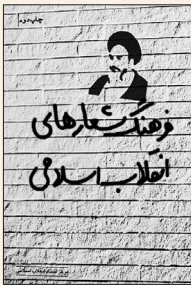 چاپ دوم
فرهنگ شعارهای
انقلاب اسلامی
مرکز اسناد انقلاب اسلامی